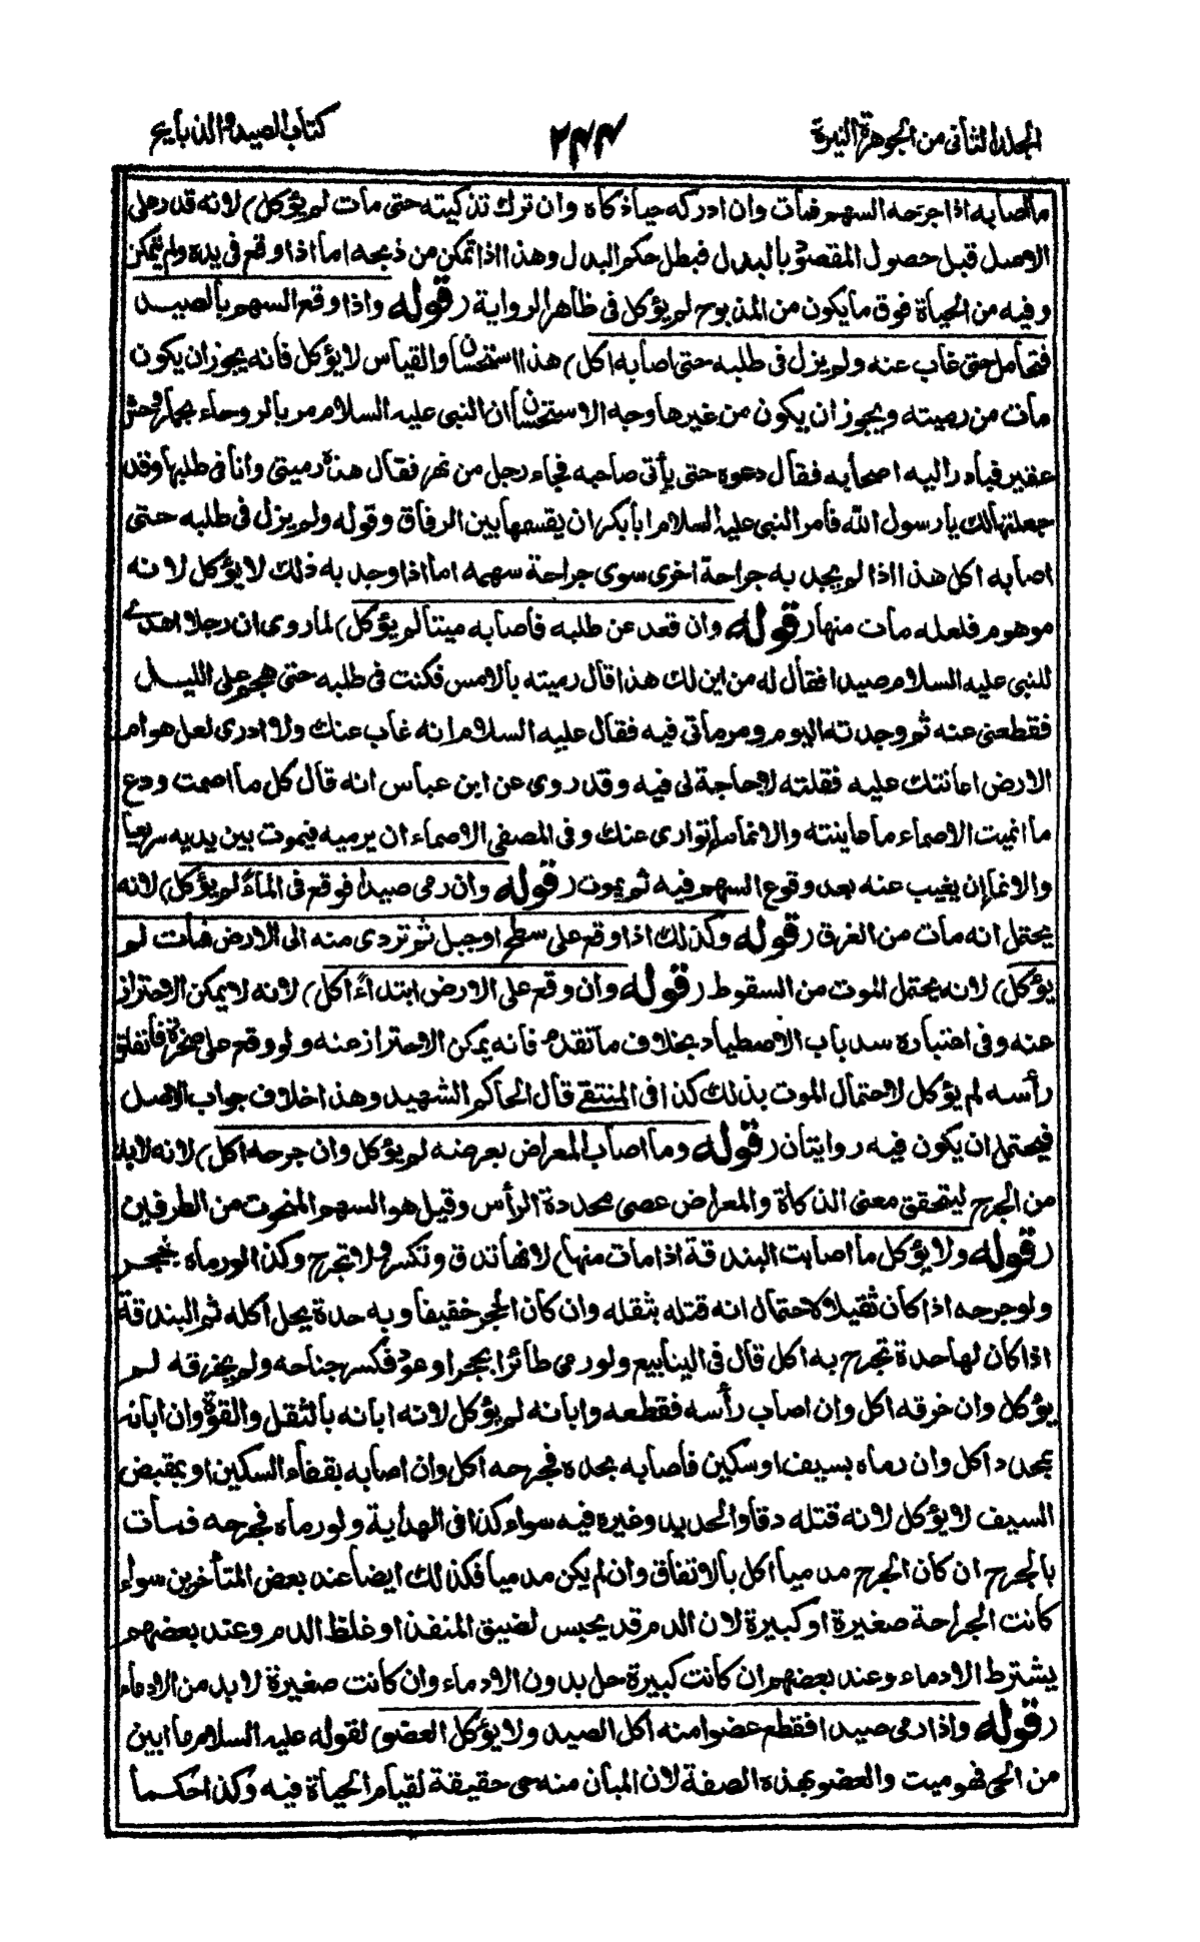 المجلد الثانى من الجوهرة النيرة
٢٤٤
كتاب الصيد والذبايح
ما اصابه اذا جرحه السهم فمات وان ادركه حيا ذكاه وان ترك تذكيته حتى مات لم يؤكل) لانه قدر على
الاصل قبل حصول المقصود بالبدل فبطل حكم البدل وهذا اذا تمكن من ذبحه اما اذا وقع فى يده ولم يتمكن
وفيه من الحياة فوق ما يكون من المذبوح لم يؤكل فى ظاهر الرواية (قوله واذا وقع السهم بالصيد
فتحامل حتى غاب عنه ولم يزل فى طلبه حتى اصابه اكل) هذا استحسان والقياس لا يؤكل فانه يجوز ان يكون
مات من رميته ويجوز ان يكون من غيرها وجه الاستحسان ان النبى عليه السلام مر بالروحاء بحمار وحش
عقير فبادر اليه اصحابه فقال دعوه حتى يأتى صاحبه فجاء رجل من نهر فقال هذه رميتى وانا فى طلبها وقد
جعلتها لك يا رسول الله فامر النبى عليه السلام ابا بكر ان يقسمها بين الرفاق وقوله ولم يزل فى طلبه حتى
اصابه اكل هذا اذا لم يجد به جراحة اخرى سوى جراحة سهمه اما اذا وجد به ذلك لا يؤكل لانه
موهوم فلعله مات منها (قوله وان قعد عن طلبه فاصابه ميتا لم يؤكل) لما روى ان رجلا اهدى
للنبى عليه السلام صيدا فقال له من اين لك هذا قال رميته بالامس فكنت فى طلبه حتى هجم على الليل
فقطعنى عنه ثم وجدته اليوم ومرماتى فيه فقال عليه السلام انه غاب عنك ولا ادرى لعل هوام
الارض اعانتك عليه فقتلته لا حاجة لى فيه وقد روى عن ابن عباس انه قال كل ما اصمت ودع
ما انميت الاصماء ما عاينته والانماء ما توارى عنك وفى المصفى الاصماء ان يرميه فيموت بين يديه سريعا
والانماء ان يغيب عنه بعد وقوع السهم فيه ثم يموت (قوله وان رمى صيدا فوقع فى الماء لم يؤكل) لانه
يحتمل انه مات من الغرق (قوله وكذلك اذا وقع على سطح او جبل ثم تردى منه الى الارض فمات لم
يؤكل) لانه يحتمل الموت من السقوط (قوله وان وقع على الارض ابتداءً اكل) لانه لا يمكن الاحتراز
عنه وفى اعتباره سد باب الاصطياد بخلاف ما تقدم فانه يمكن الاحتراز عنه ولو وقع على صخرة فانفلق
رأسه لم يؤكل لاحتمال الموت بذلك كذا فى المنتقى قال الحاكم الشهيد وهذا خلاف جواب الاصل
فيحتمل ان يكون فيه روايتان (قوله وما اصاب المعراض بعرضه لم يؤكل وان جرحه اكل) لانه لابد
من الجرح ليتحقق معنى الذكاة والمعراض عصى محددة الرأس وقيل هو السهم المنحوت من الطرفين
(قوله ولا يؤكل ما اصابت البندقة اذا مات منها) لانها تدق وتكسر ولا تجرح وكذا لو رماه بحجر
ولو جرحه اذا كان ثقيلا لاحتمال انه قتله بثقله وان كان الحجر خفيفا وبه حدة يحل اكله ثم البندقة
اذا كان لها حدة تجرح به اكل قال فى الينابيع ولو رمى طائرا بحجر او عود فكسر جناحه ولم يخرقه لم
يؤكل وان خرقه اكل وان اصاب رأسه فقطعه وابانه لم يؤكل لانه ابانه بالثقل والقوة وان ابانه
بمحدد اكل وان رماه بسيف او سكين فاصابه بحده فجرحه اكل وان اصابه بقفاء السكين او بمقبض
السيف لا يؤكل لانه قتله دقا والحديد وغيره فيه سواء كذا فى الهداية ولو رماه فجرحه فمات
بالجرح ان كان الجرح مدميا اكل بالاتفاق وان لم يكن مدميا فكذلك ايضا عند بعض المتأخرين سواء
كانت الجراحة صغيرة او كبيرة لان الدم قد يحبس لضيق المنفذ او غلظ الدم وعند بعضهم
يشترط الادماء وعند بعضهم ان كانت كبيرة حل بدون الادماء وان كانت صغيرة لا بد من الادماء
(قوله واذا رمى صيدا فقطع عضوا منه اكل الصيد ولا يؤكل العضو) لقوله عليه السلام ما ابين
من الحى فهو ميت والعضو بهذه الصفة لان المبان منه حى حقيقة لقيام الحياة فيه وكذا حكما